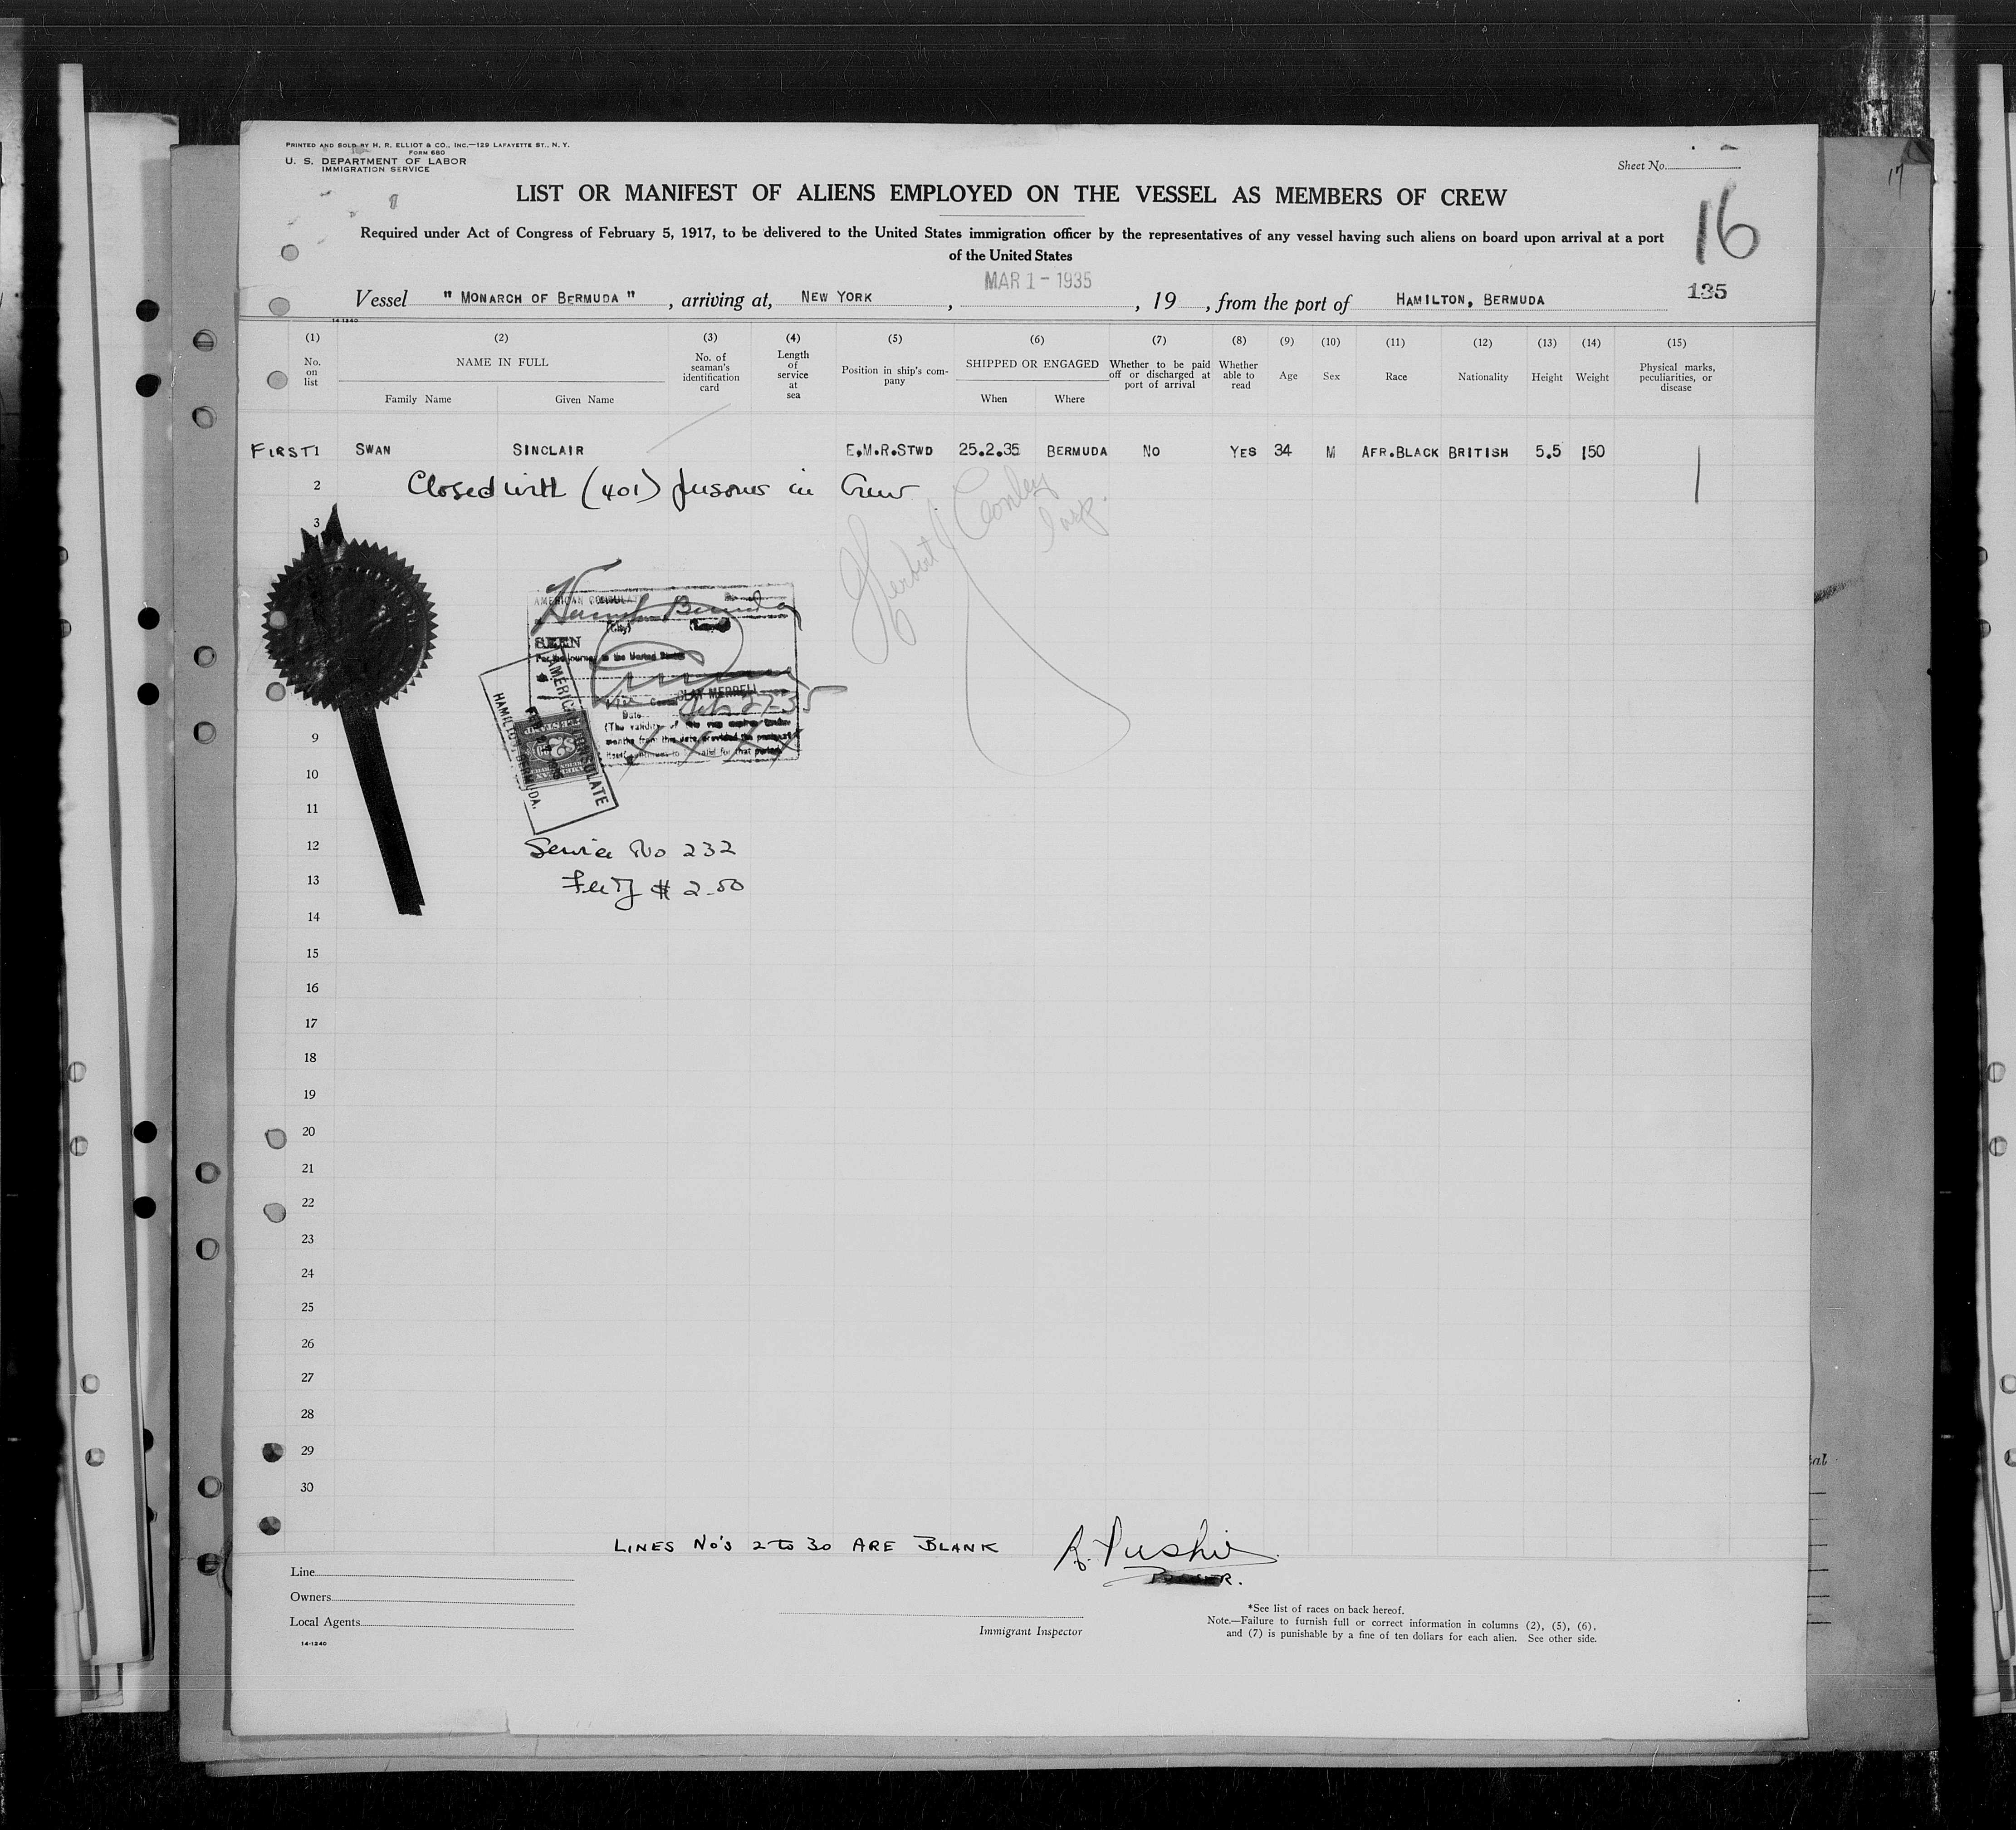 PRINTED AND SOLD BY H. R. ELLIOT & CO., INC.—129 LAFAYETTE ST., N. Y.
FORM 680
U. S. DEPARTMENT OF LABOR
IMMIGRATION SERVICE
Sheet No.
LIST OR MANIFEST OF ALIENS EMPLOYED ON THE VESSEL AS MEMBERS OF CREW
16
17
Required under Act of Congress of February 5, 1917, to be delivered to the United States immigration officer by the representatives of any vessel having such aliens on board upon arrival at a port
of the United States
MAR 1 - 1935
135
Vessel " MONARCH OF BERMUDA ", arriving at, NEW YORK, , 19 , from the port of HAMILTON, BERMUDA
14-1240
(1) (2) (3) (4) (5) (6) (7) (8) (9) (10) (11) (12) (13) (14) (15)
No. on list
NAME IN FULL
Family Name
Given Name
No. of seaman's identification card
Length of service at sea
Position in ship's company
SHIPPED OR ENGAGED
When
Where
Whether to be paid off or discharged at port of arrival
Whether able to read
Age
Sex
Race
Nationality
Height
Weight
Physical marks, peculiarities, or disease
FIRST 1 SWAN SINCLAIR E.M.R.STWD 25.2.35 BERMUDA NO YES 34 M AFR.BLACK BRITISH 5.5 150
2 Closed with (401) persons in Crew
3
Herbert J Conley
Insp.
AMERICAN CONSULATE
Hamilton Bermuda
(City)
SEEN
For the journey to the United States
CLAY MERRELL
Vice Consul
Date Feb 27-35
(The validity of this visa expires twelve
months from this date, provided the passport
continues to valid for that period)
AMERICAN CONSULATE
HAMILTON, BERMUDA.
9
10
11
12 Service No 232
13 Fee $ 2.50
14
15
16
17
18
19
20
21
22
23
24
25
26
27
28
29
30
LINES No's 2 to 30 ARE BLANK
PURSER.
Line
Owners
Local Agents
14-1240
Immigrant Inspector
*See list of races on back hereof.
Note.—Failure to furnish full or correct information in columns (2), (5), (6),
and (7) is punishable by a fine of ten dollars for each alien. See other side.